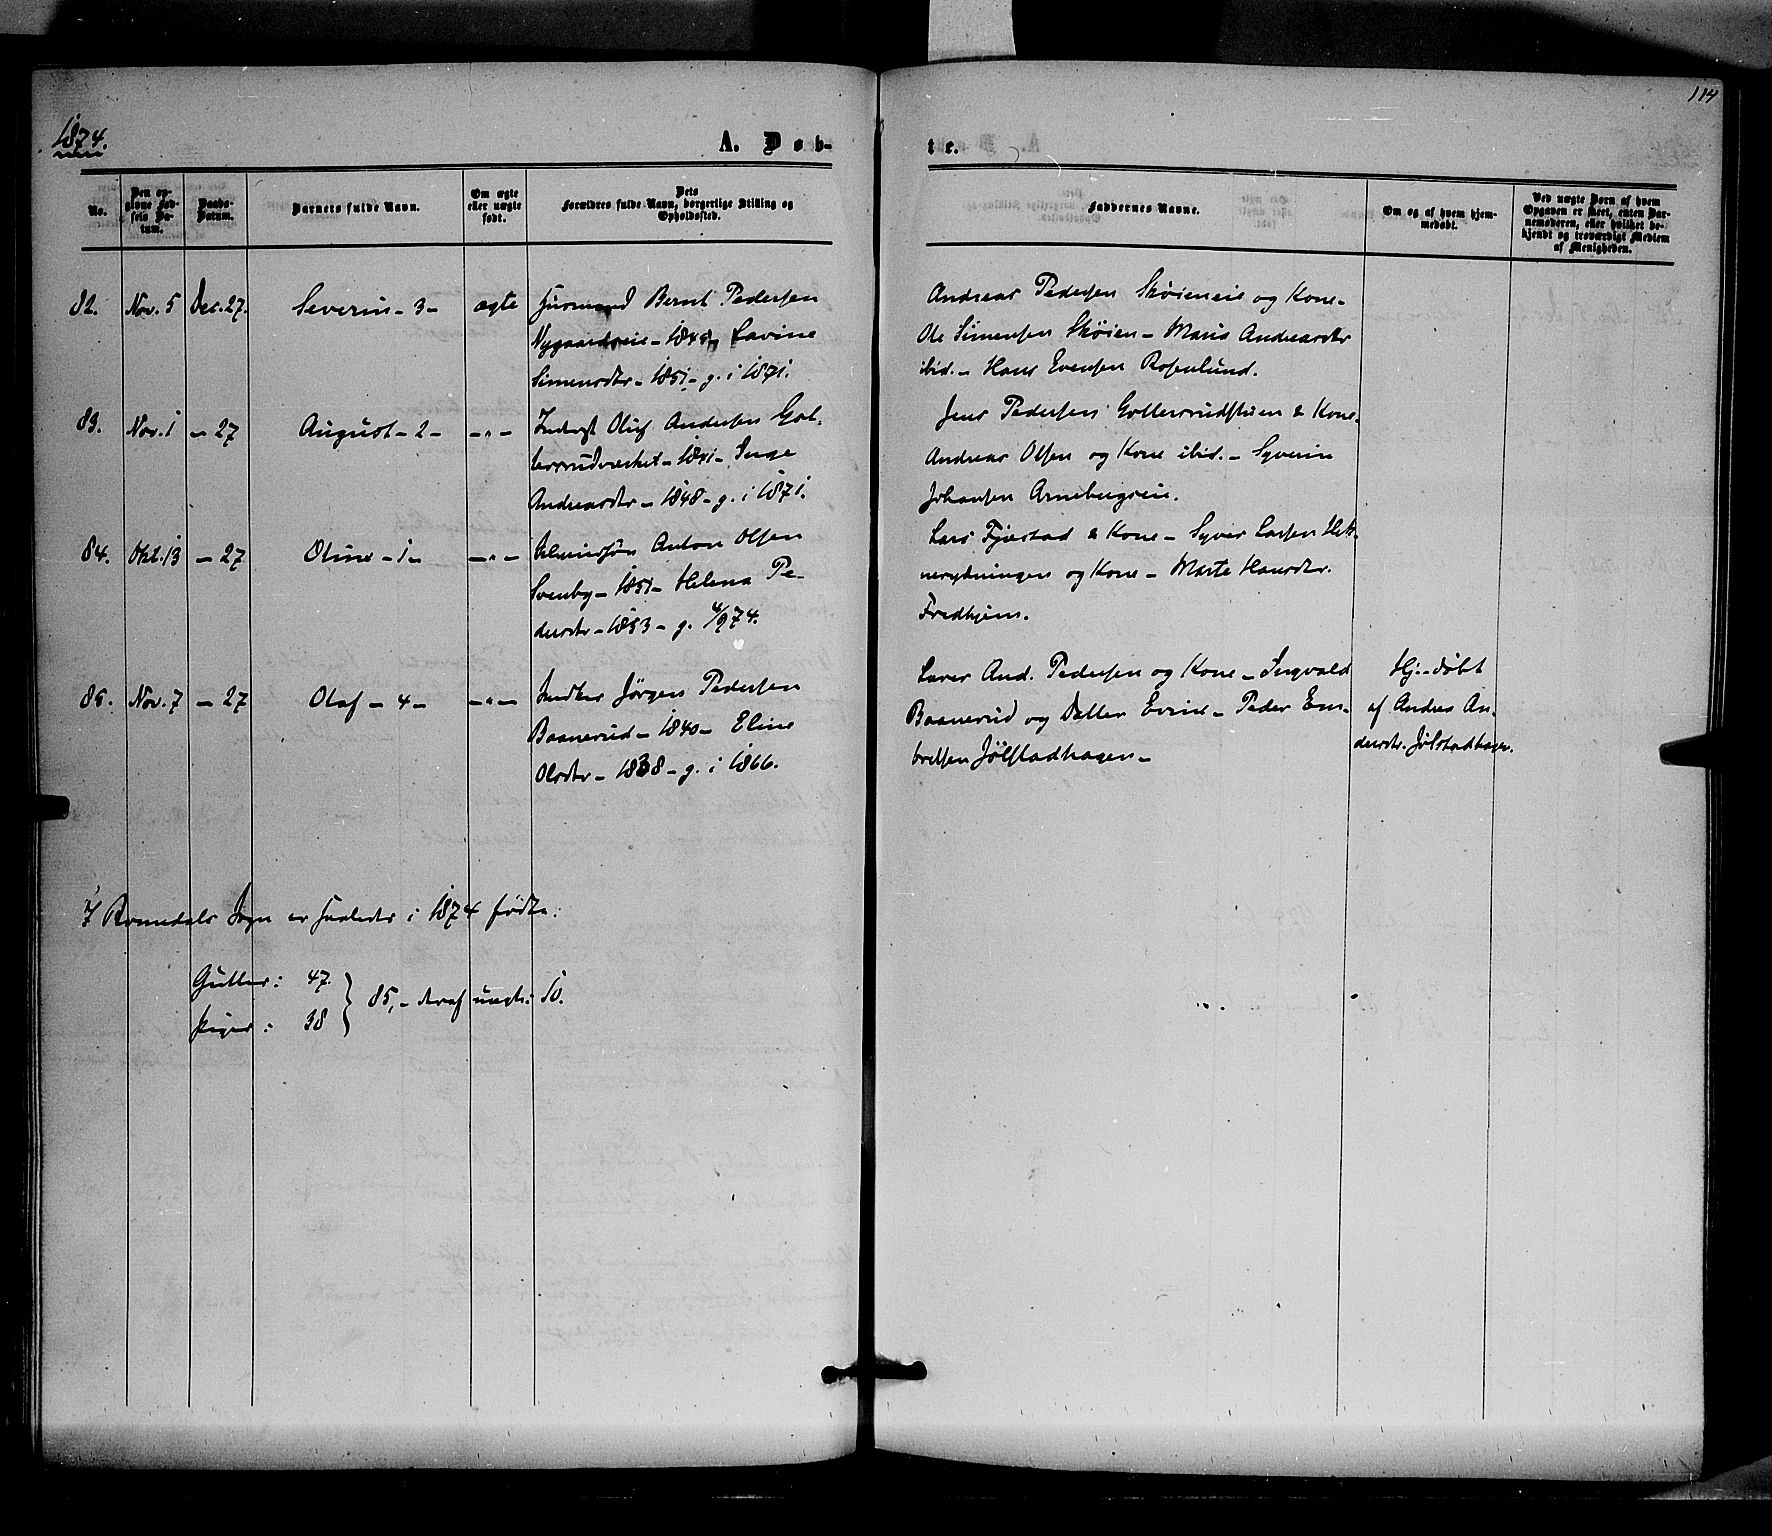 1874.
114
A. Døb-
te.
No.
Den op-
givne Fød-
sels Da-
tum.
Daabs-
Datum.
Barnets fulde Navn.
Om ægte
eller uægte
født.
Dets
Forældres fulde Navn, borgerlige Stilling og
Opholdssted.
Faddernes Navne.
Om og af hvem hjem-
medøbt.
Ved uægte Børn af hvem
Opgaven er skeet, enten Bar-
nemoderen, eller hvilket be-
kjendt og troværdigt Medlem
af Menigheden.
82. Nov. 5 Dec. 27. Severin - 3 - ægte Huusmand Bernt Pedersen
Nygaardseie - 1845, Lavine
Simensdtr - 1851 - g. i 1871.
Andreas Pedersen Skøieneie og Kone -
Ole Simensen Skøien - Maria Andreasdtr
ibid. - Hans Evensen Rosenlund.
83. Nov. 1 - 27 August - 2 - - " - Inderst Oluf Andersen Gol-
lerrudverket - 1841 - Inge
Andreasdtr - 1848 - g. i 1871.
Jens Pedersen Gollerrudstuen & Kone -
Andreas Olsen og Kone ibid. - Syverin
Johansen Arnebergseie.
84. Okt. 13 - 27 Oline - 1 - - " - Anton Olsen
Svenby - 1851 - Helena Pe-
dersdtr - 1853 - g. 4/9 74.
Lars Fjæstad & Kone - Syver Larsen
og Kone - Marte Hansdtr.
Fredhjem.
85. Nov. 7 - 27 Olaf - 4 - - " - Snedker Jørgen Pedersen
Baanerud - 1840 - Eline
Olsdtr - 1838 - g. i 1866.
Lærer And. Pedersen og Kone - Ingvald
Baanerud og Datter Evine - Peder Em-
bretsen Jølstadhagen -
Hj.-døbt
af Andrea An-
dersdtr. Jølstadhagen.
I Romedals Sogn er saaledes i 1874 fødte:
Gutter: 47.
Piger: 38
} 85, - deraf uægte: 10.